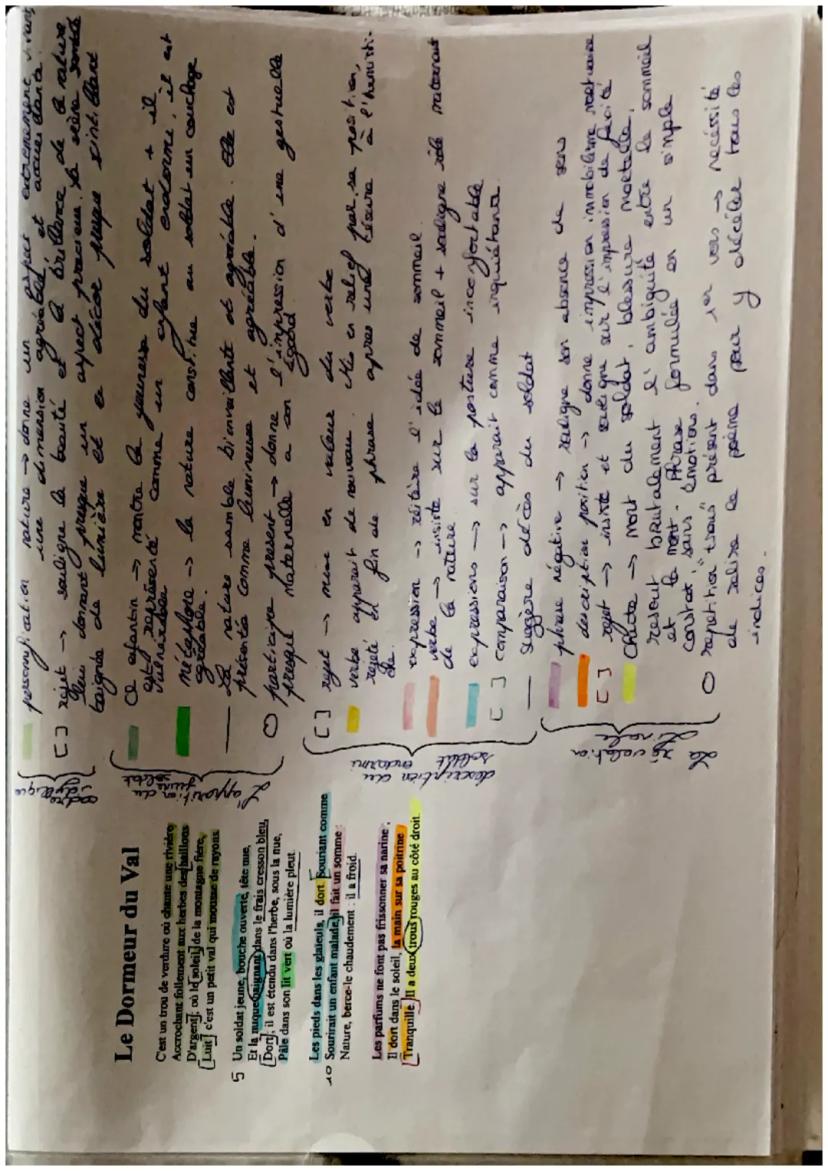 Le Dormeur du Val
C'est un trou de verdure où chante une rivière
Accrochant follement aux herbes des haillons
D'argent ; où le soleil, de la montagne fière,
Luit ; c'est un petit val qui mousse de rayons
5 Un soldat jeune, bouche ouverte, tête nue,
Et la nuque baignant dans le frais cresson bleu,
Dort ; il est étendu dans l'herbe, sous la nue,
Pâle dans son lit vert où la lumière pleut.
Les pieds dans les glaïeuls, il dort. Souriant comme
10 Sourirait un enfant malade, il fait un somme :
Nature, berce-le chaudement : il a froid.
Les parfums ne font pas frissonner sa narine ;
Il dort dans le soleil, la main sur sa poitrine
Tranquille. Il a deux trous rouges au côté droit.
cadre
idyllique
L'apparition du
jeune soldat
description du
soldat endormi
La révélation
finale
personnification nature → donne un aspect extrêmement vivant,
une dimension agréable et
[ ] rejet → souligne la beauté et la brillance de la nature
lui donnant presque un aspect précieux. La scène semble
baignée de lumière et ce décor presque scintillant
CC enfantin → montre la jeunesse du soldat + il
est représenté comme un enfant endormi, il est
vulnérable
métaphore → la nature constitue au soldat un couchage
agréable.
La nature semble bienveillante et agréable. Elle est
présentée comme lumineuse et agréable.
participe présent → donne l'impression d'une gestuelle
presque maternelle à son égard.
[ ] rejet → mise en valeur du verbe
verbe apparait de nouveau. Mis en relief par sa position,
rejeté en fin de phrase après une césure à l'hémisti-
che.
expression → réitère l'idée de sommeil
verbe → insiste sur le sommeil + souligne rôle maternant
de la nature
expressions → sur la posture inconfortable
[ ] comparaison → apparait comme inquiétant
suggère décès du soldat
phrase négative → souligne son absence de sens
description position → donne impression immobilisme mortuaire
[ ] rejet → insiste et souligne sur l'impression de facilité
Chute → mort du soldat, blessure mortelle,
résout brutalement l'ambiguité entre le sommeil
et la mort. Phrase formulée en un simple
constat, sans émotions.
repetition "trous" présent dans 1er vers → nécessité
de relire le poème pour y déceler tous les
indices.